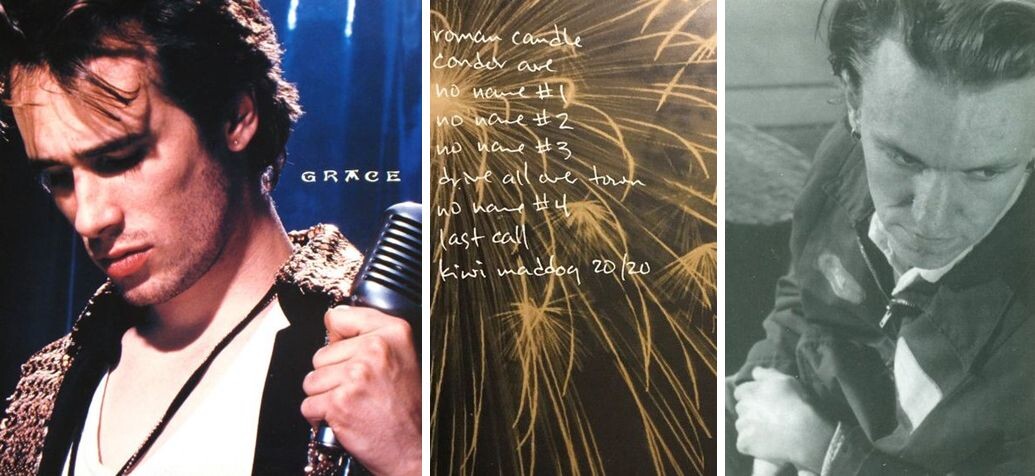 GRACE
roman candle
condor ave
no name #1
no name #2
no name #3
drive all over town
no name #4
last call
kiwi maddog 20/20